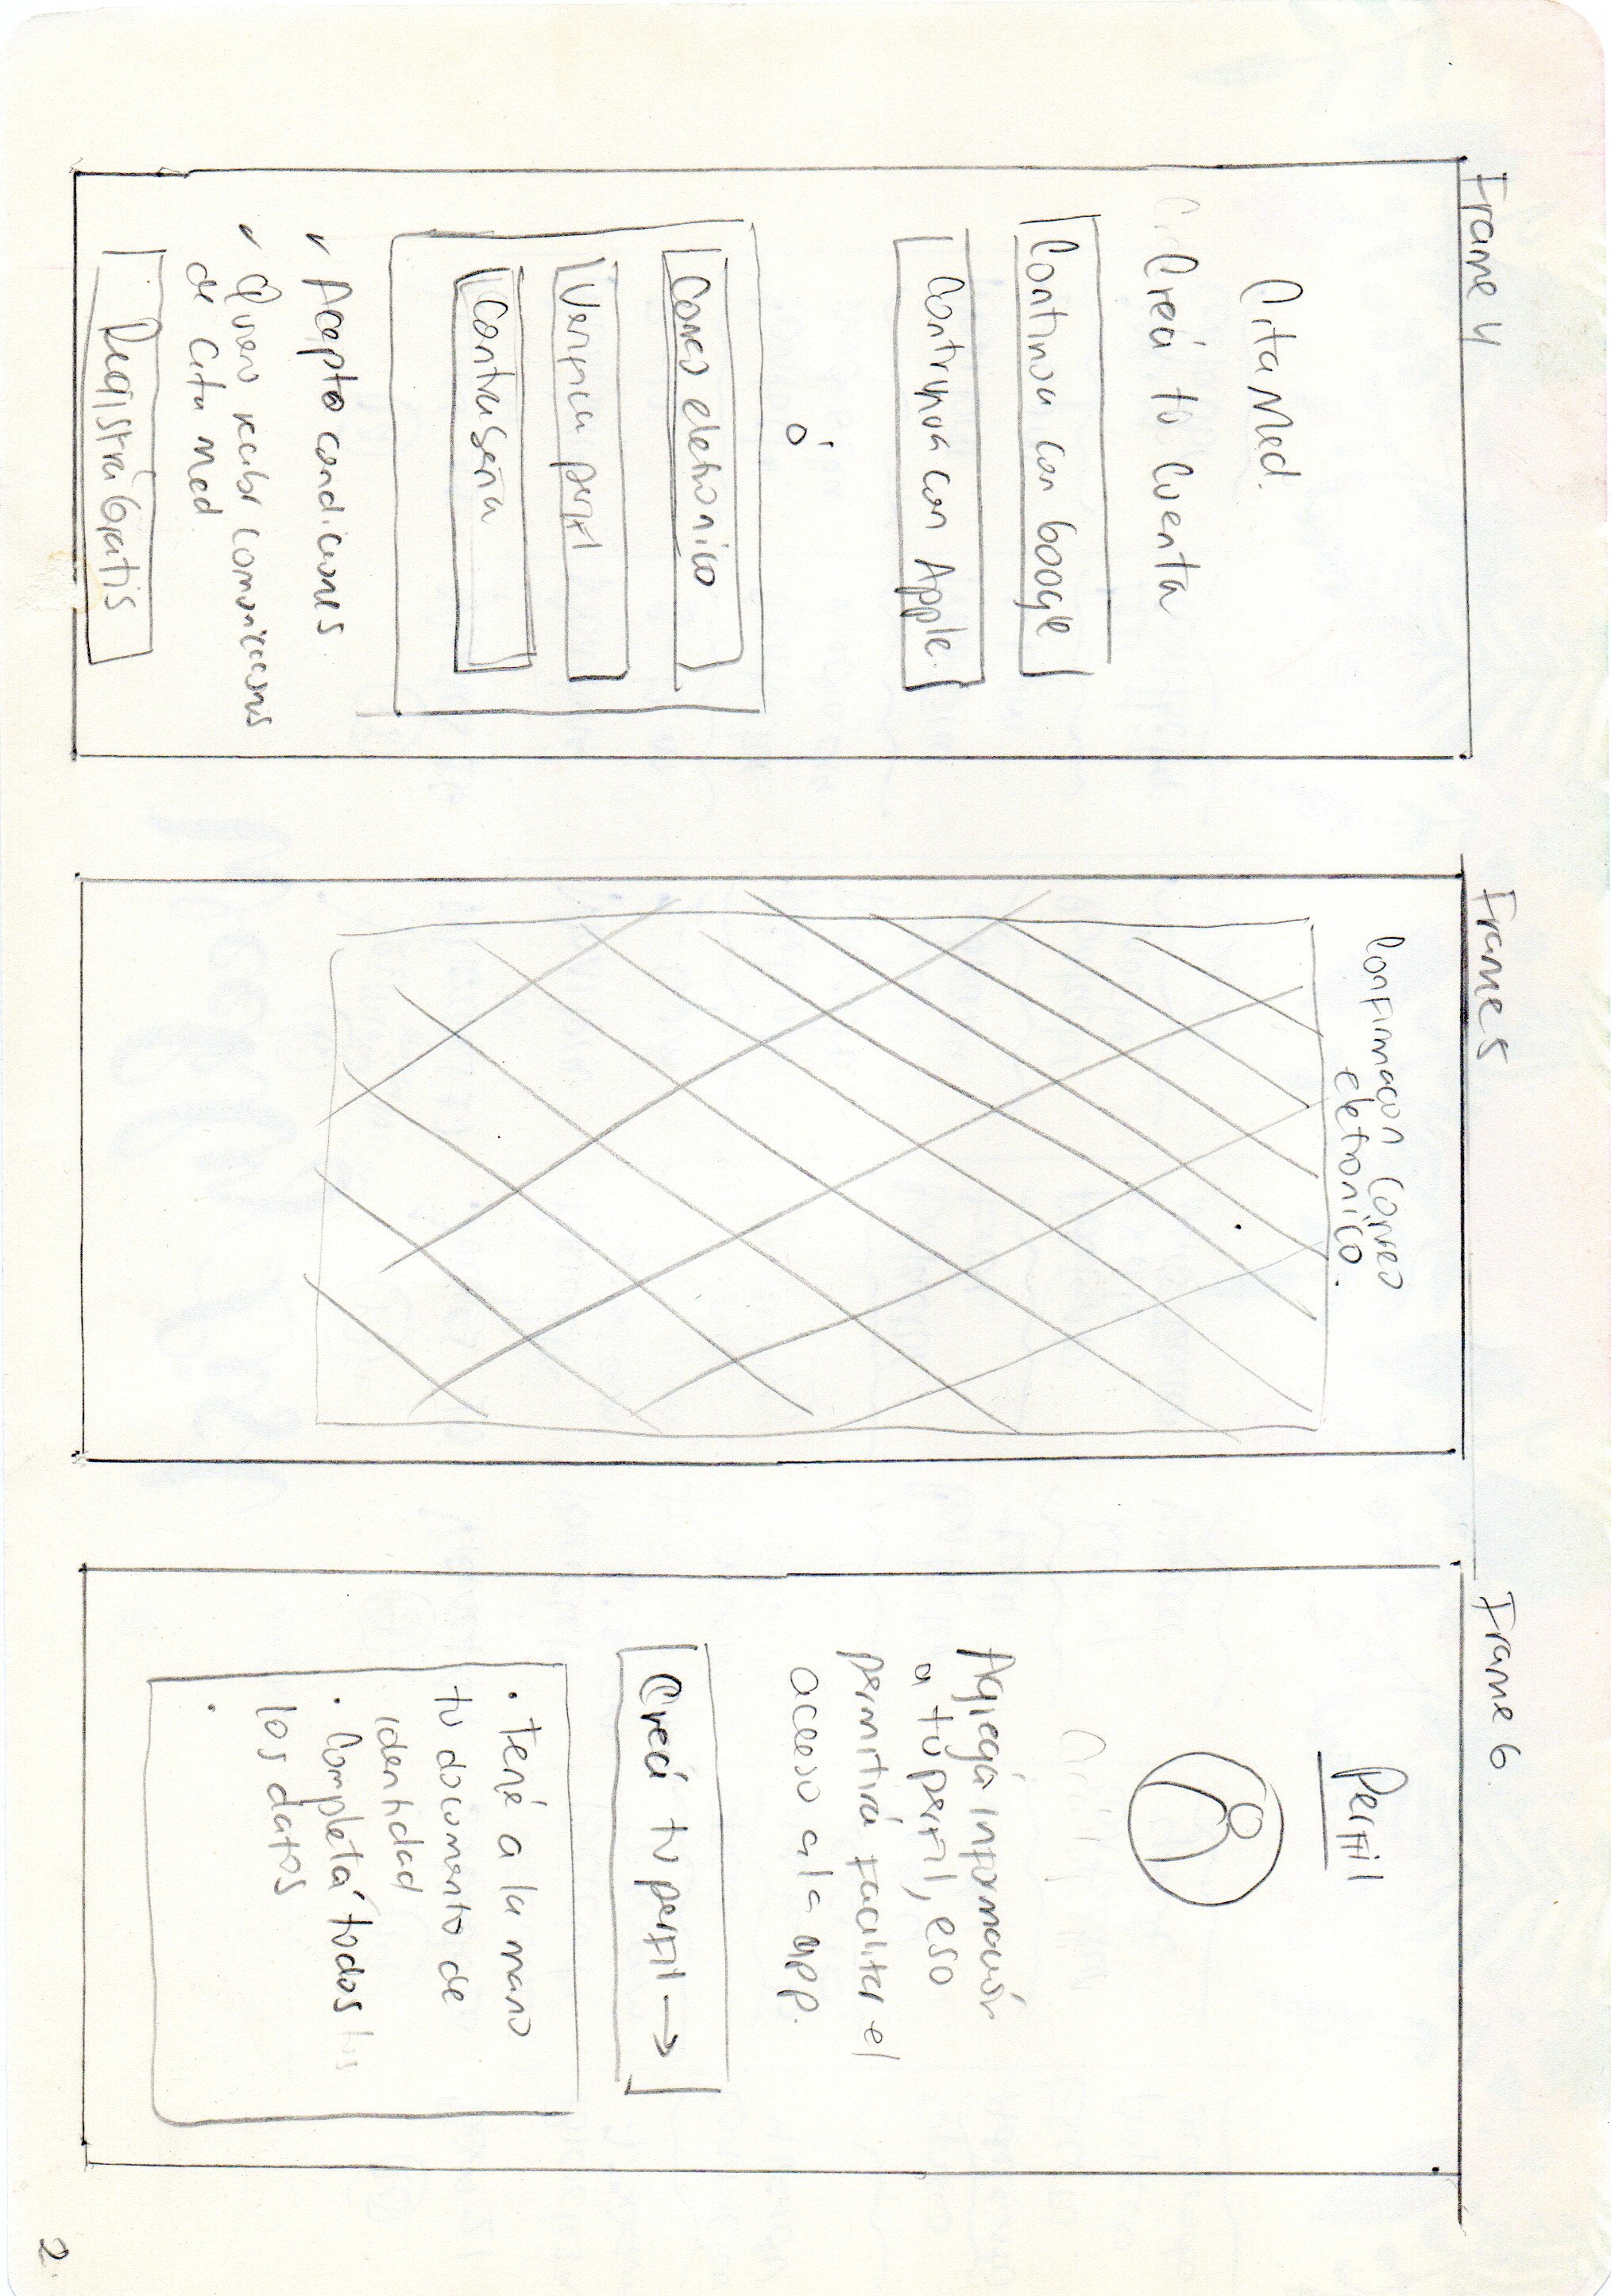 Frame 4
Cita Med.
Creá tu cuenta
Continua con Google
Continua con Apple.
ó
Correo eletronico
Verifica perfil
Contraseña
✓ Acepto condiciones
✓ Quiero recibir comunicaciones
de Cita Med
Registrá Gratis
Frame 5
Confirmacon correo
eletronico.
Frame 6.
Perfil
Agregá información
a tu perfil, eso
permitirá facilitar el
acceso a la app.
Creá tu perfil →
• Tené a la mano
tu documento de
identidad
• Completá todos los
los datos
•
2.